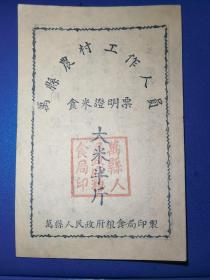 萬縣農村工作人員
食米證明票
大米半斤
萬縣人民政府粮食局印製